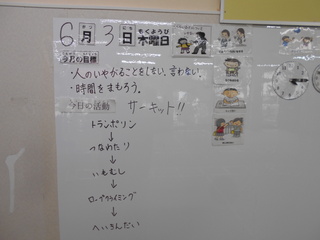 6月3日木曜日
今月の目標
・人のいやがることをしない、言わない。
・時間をまもろう。
今日の活動 サーキット!!
トランポリン
↓
つなわたり
↓
いもむし
↓
ロッククライミング
↓
へいきんだい